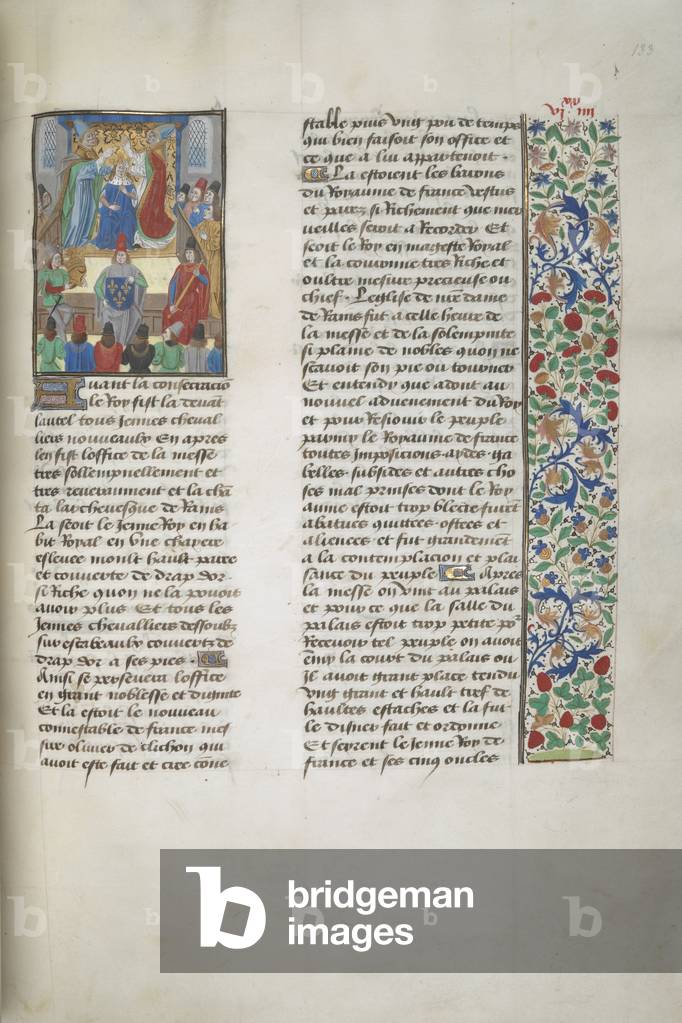 133
vi xx iiii
Auant la consecracio
le Roy fist la deuant
lautel tous Jennes cheual
liers nouueaulx En apres
len fist loffice de la messe
tres sollempnellement et
tres reueraument et la chā
ta larcheuesque de Rains
La seoit le Jenne Roy en ha
bit Royal en vne chayere
esleuee moult hault paree
et couuerte de drap dor
si Riche quon ne la pouoit
auoir plus Et tous les
Jennes cheualliers dessoubz
sur estabeaulx couuertz de
drap dor a ses pies
Ainsi se perseuera loffice
en grant noblesse et dignite
Et la estoit le nouueau
connestable de france mes
sire oliuier de clichon qui
auoit este fait et cree cōne
stable puis vng pou de temps
qui bien faisoit son office et
ce que a lui appartenoit
La estoient les barons
du Royaume de france vestus
et parez si Richement que mer
ueilles seroit a Recorder Et
seoit le Roy en mageste Royal
et la couronne tres Riche et
oultre mesure precieuse ou
chief Leglise de nre dame
de Rains fut a celle heure de
la messe et de la solempnite
si plaine de nobles quon ne
scauoit son pie ou tourner
Et entendy que adont au
nouuel aduenement du Roy
et pour Resiouir le peuple
parmy le Royaume de france
toutes Imposicions aydes ga
belles subsides et autres cho
ses mal prinses dont le Roy
aume estoit trop blecie furent
abatues quittees ostees et
aliences et fut grandement
a la contemplacion et plai
sance du peuple Apres
la messe on vint au palais
et pour ce que la salle du
palais estoit trop petite por
Receuoir tel peuple on auoit
Enmy la court du palais ou
Jl auoit grant place tendu
vng grant et hault tref de
haultes estaches et la fut
le disner fait et ordonne
Et seyrent le Jenne Roy de
france et ses cinq oncles
b bridgeman
images